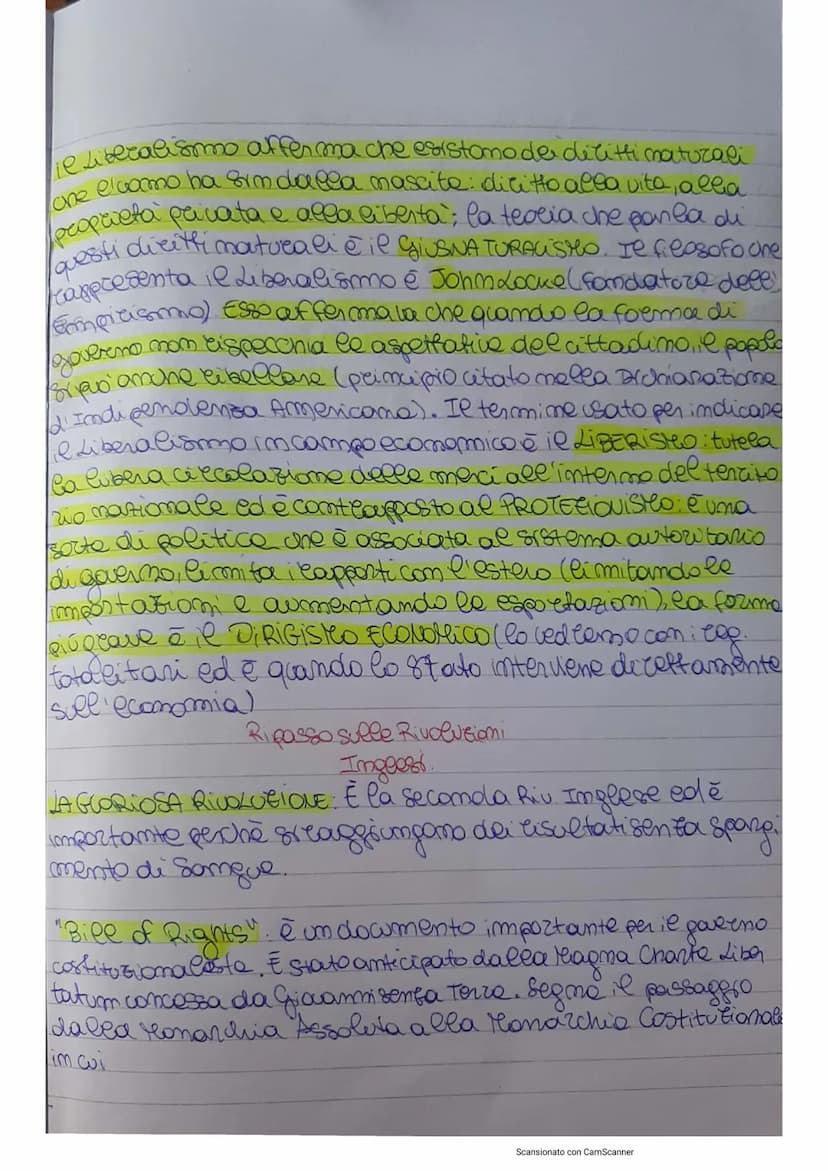 il Liberalismo afferma che esistono dei diritti naturali
che l'uomo ha sin dalla nascita: diritto alla vita, alla
proprietà privata e alla libertà; la teoria che parla di
questi diritti naturali è il GIUSNATURALISMO. Il filosofo che
rappresenta il Liberalismo è John Locke (fondatore dell'
Empirismo). Esso affermava che quando la forma di
governo non rispecchia le aspettative del cittadino, il popolo
si può anche ribellare (principio citato nella Dichiarazione
d'Indipendenza Americana). Il termine usato per indicare
il Liberalismo in campo economico è il LIBERISMO: tutela
la libera circolazione delle merci all'interno del territo
rio nazionale ed è contrapposto al PROTEZIONISMO: è una
sorte di politica che è associata al sistema autoritario
di governo, limita i rapporti con l'estero (limitando le
importazioni e aumentando le esportazioni), la forma
più grave è il DIRIGISMO ECONOMICO (lo vedremo con i reg.
totalitari ed è quando lo stato interviene direttamente
sull'economia)
Ripasso sulle Rivoluzioni
Inglesi.
LA GLORIOSA RIVOLUZIONE: È la seconda Riv. Inglese ed è
importante perchè si raggiungono dei risultati senza spargi
mento di Sangue.
"Bill of Rights". è un documento importante per il governo
costituzionalista. È stato anticipato dalla Magna Charte Liber
tatum concessa da Giovanni senza Terra. Segna il passaggio
dalla Monarchia Assoluta alla Monarchia Costituzionale
in cui
Scansionato con CamScanner